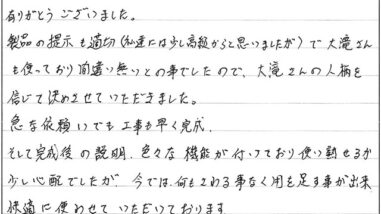 ありがとうございました。
製品の提示も適切(私達には少し高級からと思いましたが)で大滝さん
も使っており間違い無いとの事でしたので、大滝さんの人柄を
信じて決めさせていただきました。
急な依頼いでも工事も早く完成、
そして完成後の説明、色々な機能が付いっており使い熟せるか
少し心配でしたが、今では何もさわる事なく用を足す事が出来
快適に使わせていただいております。